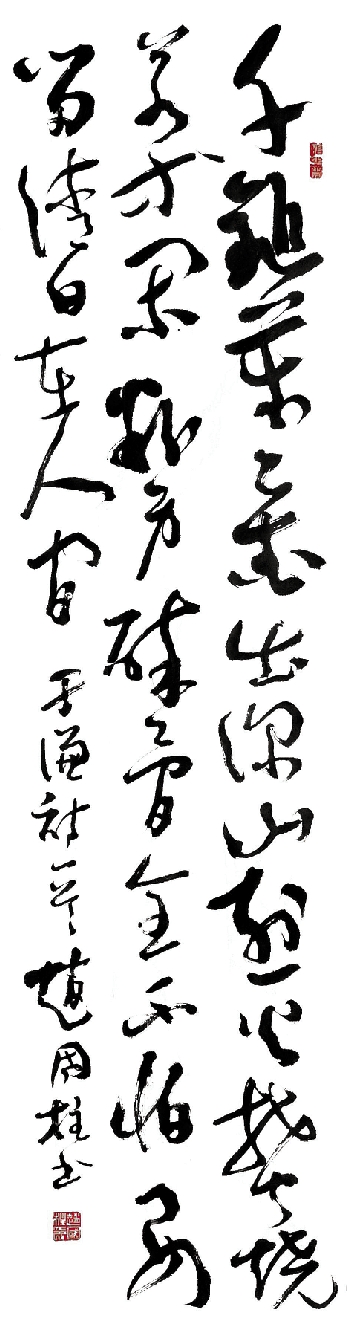 千鎚萬鑿出深山烈火焚燒
若等閑粉身碎骨全不怕要
留清白在人間 于謙詩一首 趙國柱書